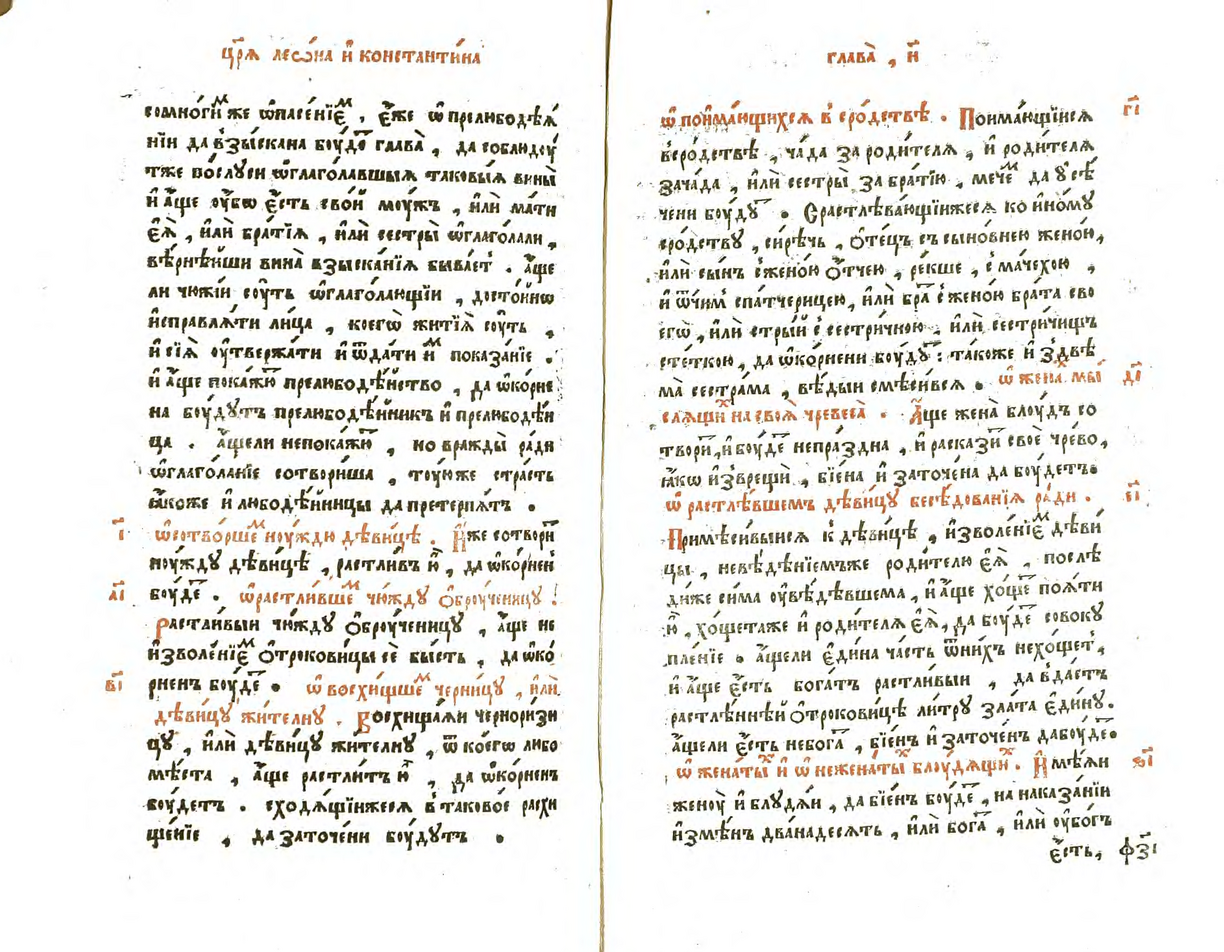 цр҃ѧ леѡ́на и҆ константи́на
сомно́гиⷨ же ѡ҆пасе́нїеⷨ , е҆́же ѡ҆ прелюбодѣѧ́
нїи да взы́скана бꙋ́деⷮ глава̀ , да соблюдꙋ́
тже послꙋси ѡ҆глаго́лавшыѧ таковы́ѧ вины̀
и҆ а҆́ще ᲂу҆́бѡ є҆́сть сво́й мꙋ́жъ , и҆лѝ ма́ти
є҆ѧ̀ , и҆лѝ бра́тїѧ , и҆лѝ сестры̀ ѡ҆глаго́лали ,
вѣрнѣ́йши вина̀ взыска́нїѧ быва́етⸯ . а҆́ще
ли чюжі́и сꙋ́ть ѡ҆глаго́лающїи , досто́йнѡ
и҆справлѧ́ти лица̀ , коегѡ̀ житїѧ̀ сꙋ́ть ,
и҆ сїѧ̀ ᲂу҆твержа́ти и҆ ѿда́ти и҆́ⷨ показа́нїе .
и҆ а҆́ще пока́жюⷮ прелюбодѣ́йство , да ѡ҆корне
на бꙋ́дꙋтъ прелюбодѣ́йникъ и҆ прелюбодѣ́и
ца . а҆́щели непока́жюⷮ , но вражды̀ ра́ди
ѡ҆глаго́ланїе сотвори́ша , тꙋ́юже стра́сть
ꙗ҆́коже и҆ любодѣ́йницы да претерпѧ́тъ .
і҃ ѡ҆сотво́ршеⷨ нꙋ́ждю дѣви́це . И҆́же сотвори́
нꙋ́ждꙋ дѣви́цѣ , растли́въ ю҆̀ , да ѡ҆корне́н
а҃і бꙋ́деⷮ . ѡ҆растли́вшеⷨ чю́ждꙋ ѻ҆брꙋ́ченицꙋ .
Растли́выи чю́ждꙋ ѻ҆брꙋ́ченицꙋ , а҆́ще не
и҆зволе́нїеⷨ ѻ҆трокови́цы сѐ бы́сть , да ѡ҆ко́
в҃і рненъ бꙋ́деⷮ . ѡ҆ восхи́щшеⷨ черни́цꙋ , и҆лѝ
дѣви́цꙋ жи́телнꙋ . Восхища́ѧи черноризи
цꙋ , и҆лѝ дѣви́цꙋ жи́телнꙋ , ѿ коегѡ либо
мѣ́ста , а҆́ще растли́тъ ю҆̀ , да ѡ҆корненъ
бꙋ́детъ . сходѧ́щїижесѧ в таково́е расхи
ще́нїе , да заточе́ни бꙋ́дꙋтъ .
глава̀ , и҃
ѡ҆ пои́мающихсѧ в сро́дствѣ . Пои́мающїисѧ г҃і
всро́дствѣ , ча́да за роди́телѧ , и҆ роди́телѧ
зача́да , и҆лѝ сестры̀ за бра́тїю , мече́ⷨ да ᲂу҆сѣ́
чени бꙋ́дꙋⷮ . Срастлѣва́ющїижесѧ ко и҆но́мꙋ
сро́дствꙋ , си́рѣчь , ѻ҆те́цъ съ сыно́внею жено́ю ,
и҆лѝ сы́нъ сжено́ю ѻ҆́тчею , ре́кше , с ма́чехою ,
и҆ ѿчи́мⸯ спа́тчерицею , и҆лѝ браⷮ с жено́ю бра́та сво
егѡ̀ , и҆лѝ стры́й с сестри́чною , и҆лѝ сестри́чищъ
сте́ткою , да ѡ҆ко́рнени бꙋ́дꙋⷮ : та́коже и҆ здвѣ́
ма̀ сестра́ма , вѣ́дыи смѣси́всѧ . ѡ҆ жена́ⷯ мы́ д҃і
слѧщиⷯ на своѧ̀ чревеса̀ . А҆́ще жена̀ блꙋ́дъ со
твори́ⷮ , и҆ бꙋ́деⷮ непра́здна , и҆ раскази́ⷮ своѐ чре́во ,
ꙗ҆́кѡ и҆зврещѝ , бїе́на и҆ заточе́на да бꙋ́детъ .
ѡ҆ растлѣ́вшемъ дѣви́цꙋ бесѣ́дованїѧ ра́ди . е҃і
Примѣси́выисѧ к дѣви́цѣ , и҆зволе́нїеⷨ дѣви́
цы , невѣ́дѣнїемъже роди́телю є҆ѧ̀ , послѣ́
ди́же си́ма ᲂу҆вѣ́дѣвшема , и҆ а҆́ще хо́щеⷮ поѧ́ти
ю҆̀ , хо́щетаже и҆ роди́телѧ є҆ѧ̀ , да бꙋ́деⷮ совокꙋ
пле́нїе . а҆́щели є҆ди́на ча́сть ѿни́хъ нехо́щетⸯ ,
и҆ а҆́ще є҆́сть бога́тъ растли́выи , да вда́стъ
растлѣ́ннѣй ѻ҆трокови́цѣ ли́трꙋ зла́та є҆ди́нꙋ .
а҆́щели є҆́сть небога́ⷮ , бїе́нъ и҆ заточе́нъ дабꙋ́деⷮ .
ѡ҆ жена́тыⷯ и҆ ѡ҆ нежена́тыⷯ блꙋдѧ́щиⷯ . И҆мѣ́ѧи ѕ҃і
женꙋ̀ и҆ блꙋдѧ́и , да бїе́нъ бꙋ́деⷮ , на наказа́нїи
и҆змѣ́нъ двана́десѧть , и҆лѝ бога́ⷮ , и҆лѝ ᲂу҆бо́гъ
є҆́сть , ф҃з҃і